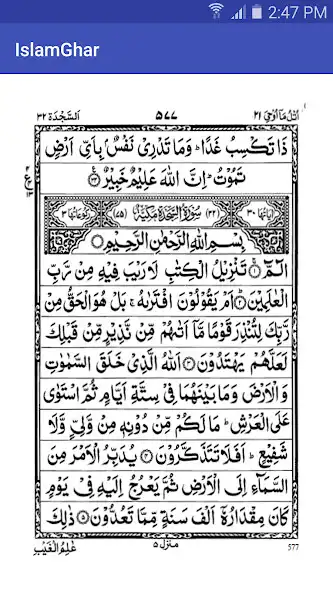 2:47 PM
IslamGhar
اَلسَّجْدَة ٣٢ ٥٧٧ اُتْلُ مَاۤ اُوْحِیَ ٢١
ذَا تَكْسِبُ غَدًا ؕ وَمَا تَدْرِیْ نَفْسٌۢ بِاَیِّ اَرْضٍ
تَمُوْتُ ؕ اِنَّ اللّٰهَ عَلِیْمٌ خَبِیْرٌ ﴿٣٤﴾
اٰیَاتُهَا ٣٠ (٣٢) سُوْرَةُ السَّجْدَةِ مَكِّیَّةٌ (٧٥) رُكُوْعَاتُهَا ٣
بِسْمِ اللّٰهِ الرَّحْمٰنِ الرَّحِیْمِ
الٓمّٓ ﴿١﴾ تَنْزِیْلُ الْكِتٰبِ لَا رَیْبَ فِیْهِ مِنْ رَّبِّ
الْعٰلَمِیْنَ ﴿٢﴾ اَمْ یَقُوْلُوْنَ افْتَرٰىهُ ۚ بَلْ هُوَ الْحَقُّ مِنْ
رَّبِّكَ لِتُنْذِرَ قَوْمًا مَّاۤ اَتٰىهُمْ مِّنْ نَّذِیْرٍ مِّنْ قَبْلِكَ
لَعَلَّهُمْ یَهْتَدُوْنَ ﴿٣﴾ اَللّٰهُ الَّذِیْ خَلَقَ السَّمٰوٰتِ
وَالْاَرْضَ وَمَا بَیْنَهُمَا فِیْ سِتَّةِ اَیَّامٍ ثُمَّ اسْتَوٰی
عَلَی الْعَرْشِ ؕ مَا لَكُمْ مِّنْ دُوْنِهٖ مِنْ وَّلِیٍّ وَّلَا
شَفِیْعٍ ؕ اَفَلَا تَتَذَكَّرُوْنَ ﴿٤﴾ یُدَبِّرُ الْاَمْرَ مِنَ
السَّمَآءِ اِلَی الْاَرْضِ ثُمَّ یَعْرُجُ اِلَیْهِ فِیْ یَوْمٍ
كَانَ مِقْدَارُهٗۤ اَلْفَ سَنَةٍ مِّمَّا تَعُدُّوْنَ ﴿٥﴾ ذٰلِكَ
منزل ٥
عٰلِمُ الْغَیْبِ
577